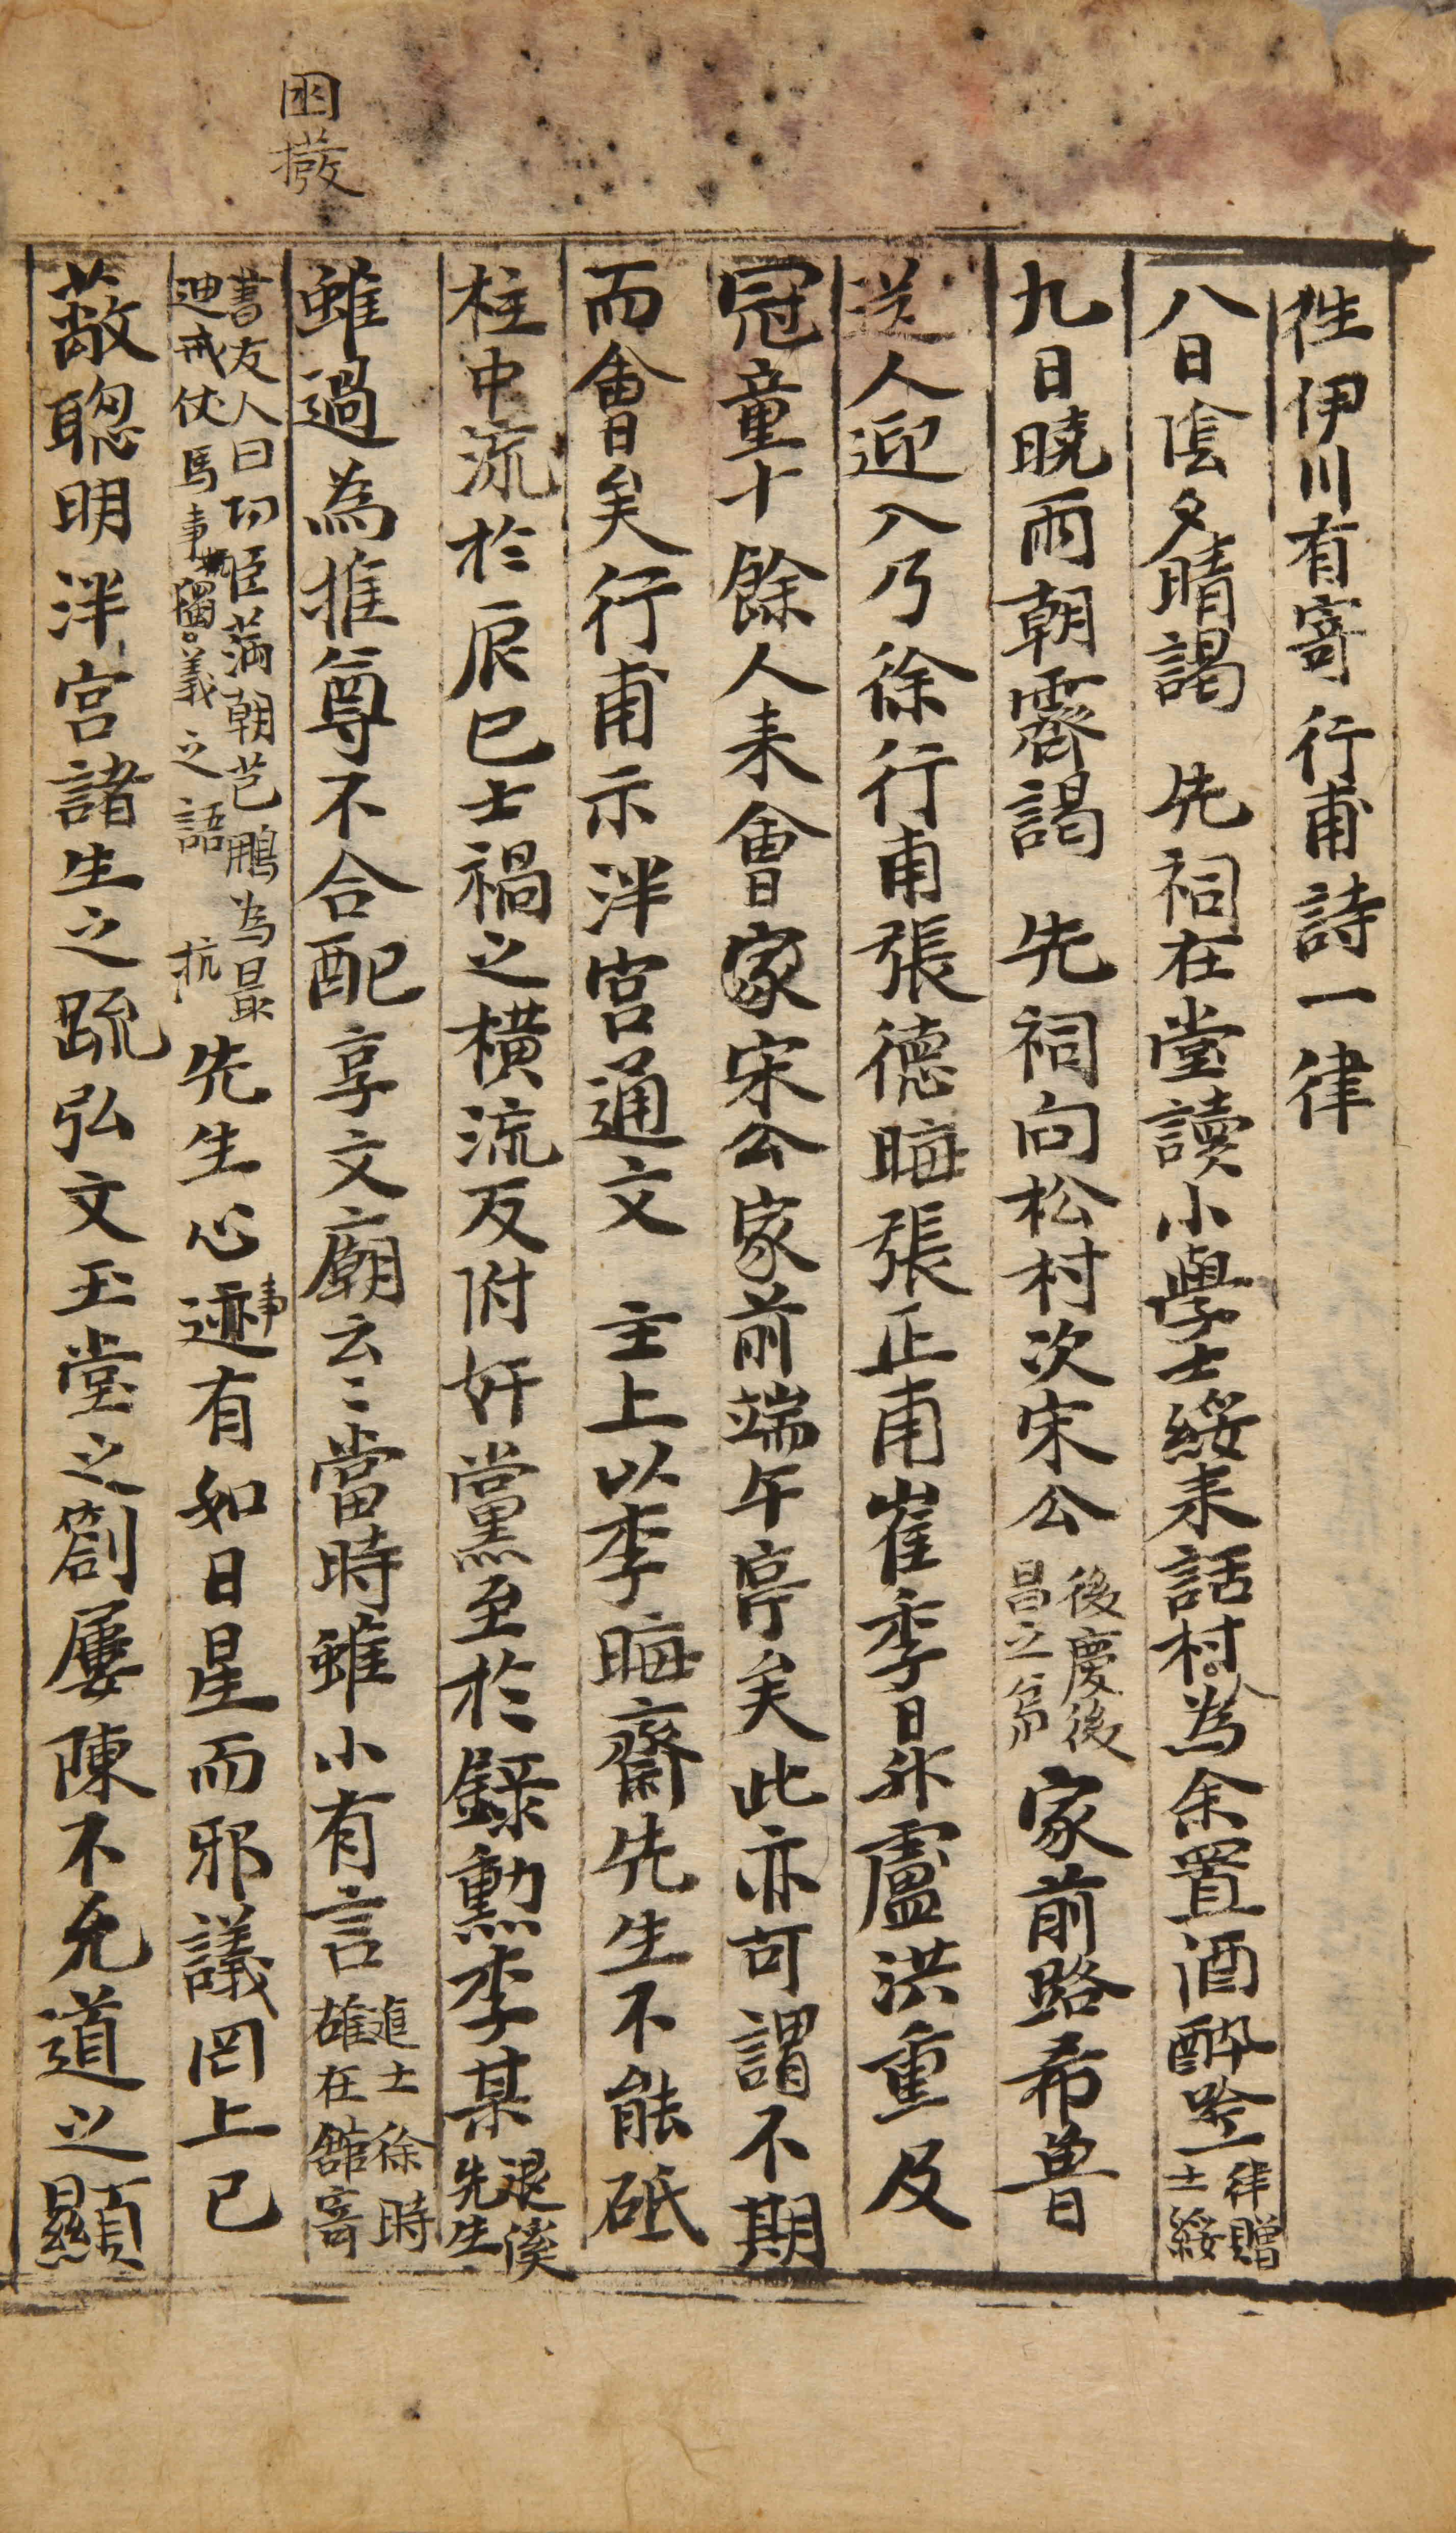 困撥
徃伊川有寄行甫詩一律
八日陰夕晴謁 先祠在堂讀小學士綏来話村人為余置酒醉吟一律贈士綏
九日曉雨朝霽謁 先祠向松村次宋公後慶後昌立胤家前路希魯
送人迎入乃徐行甫張德晦張正甫崔季昇盧洪重及
冠童十餘人来會家宋公家前端午亭矣此亦可謂不期
而會矣行甫示泮宮通文 主上以李晦齋先生不能砥
柱中流於辰巳士禍之橫流反附奸黨至於錄勳李某退溪先生
雖過為推尊不合配享文廟云〻當時雖小有言進士徐時雄在館寄
書友人曰切姬滿朝芑鵬為最迪戒仗馬事獨義之語 抗先生心事迹有如日星而邪議罔上已
蔽聰明泮宮諸生之疏弘文玉堂之劄屢陳不允道之顯